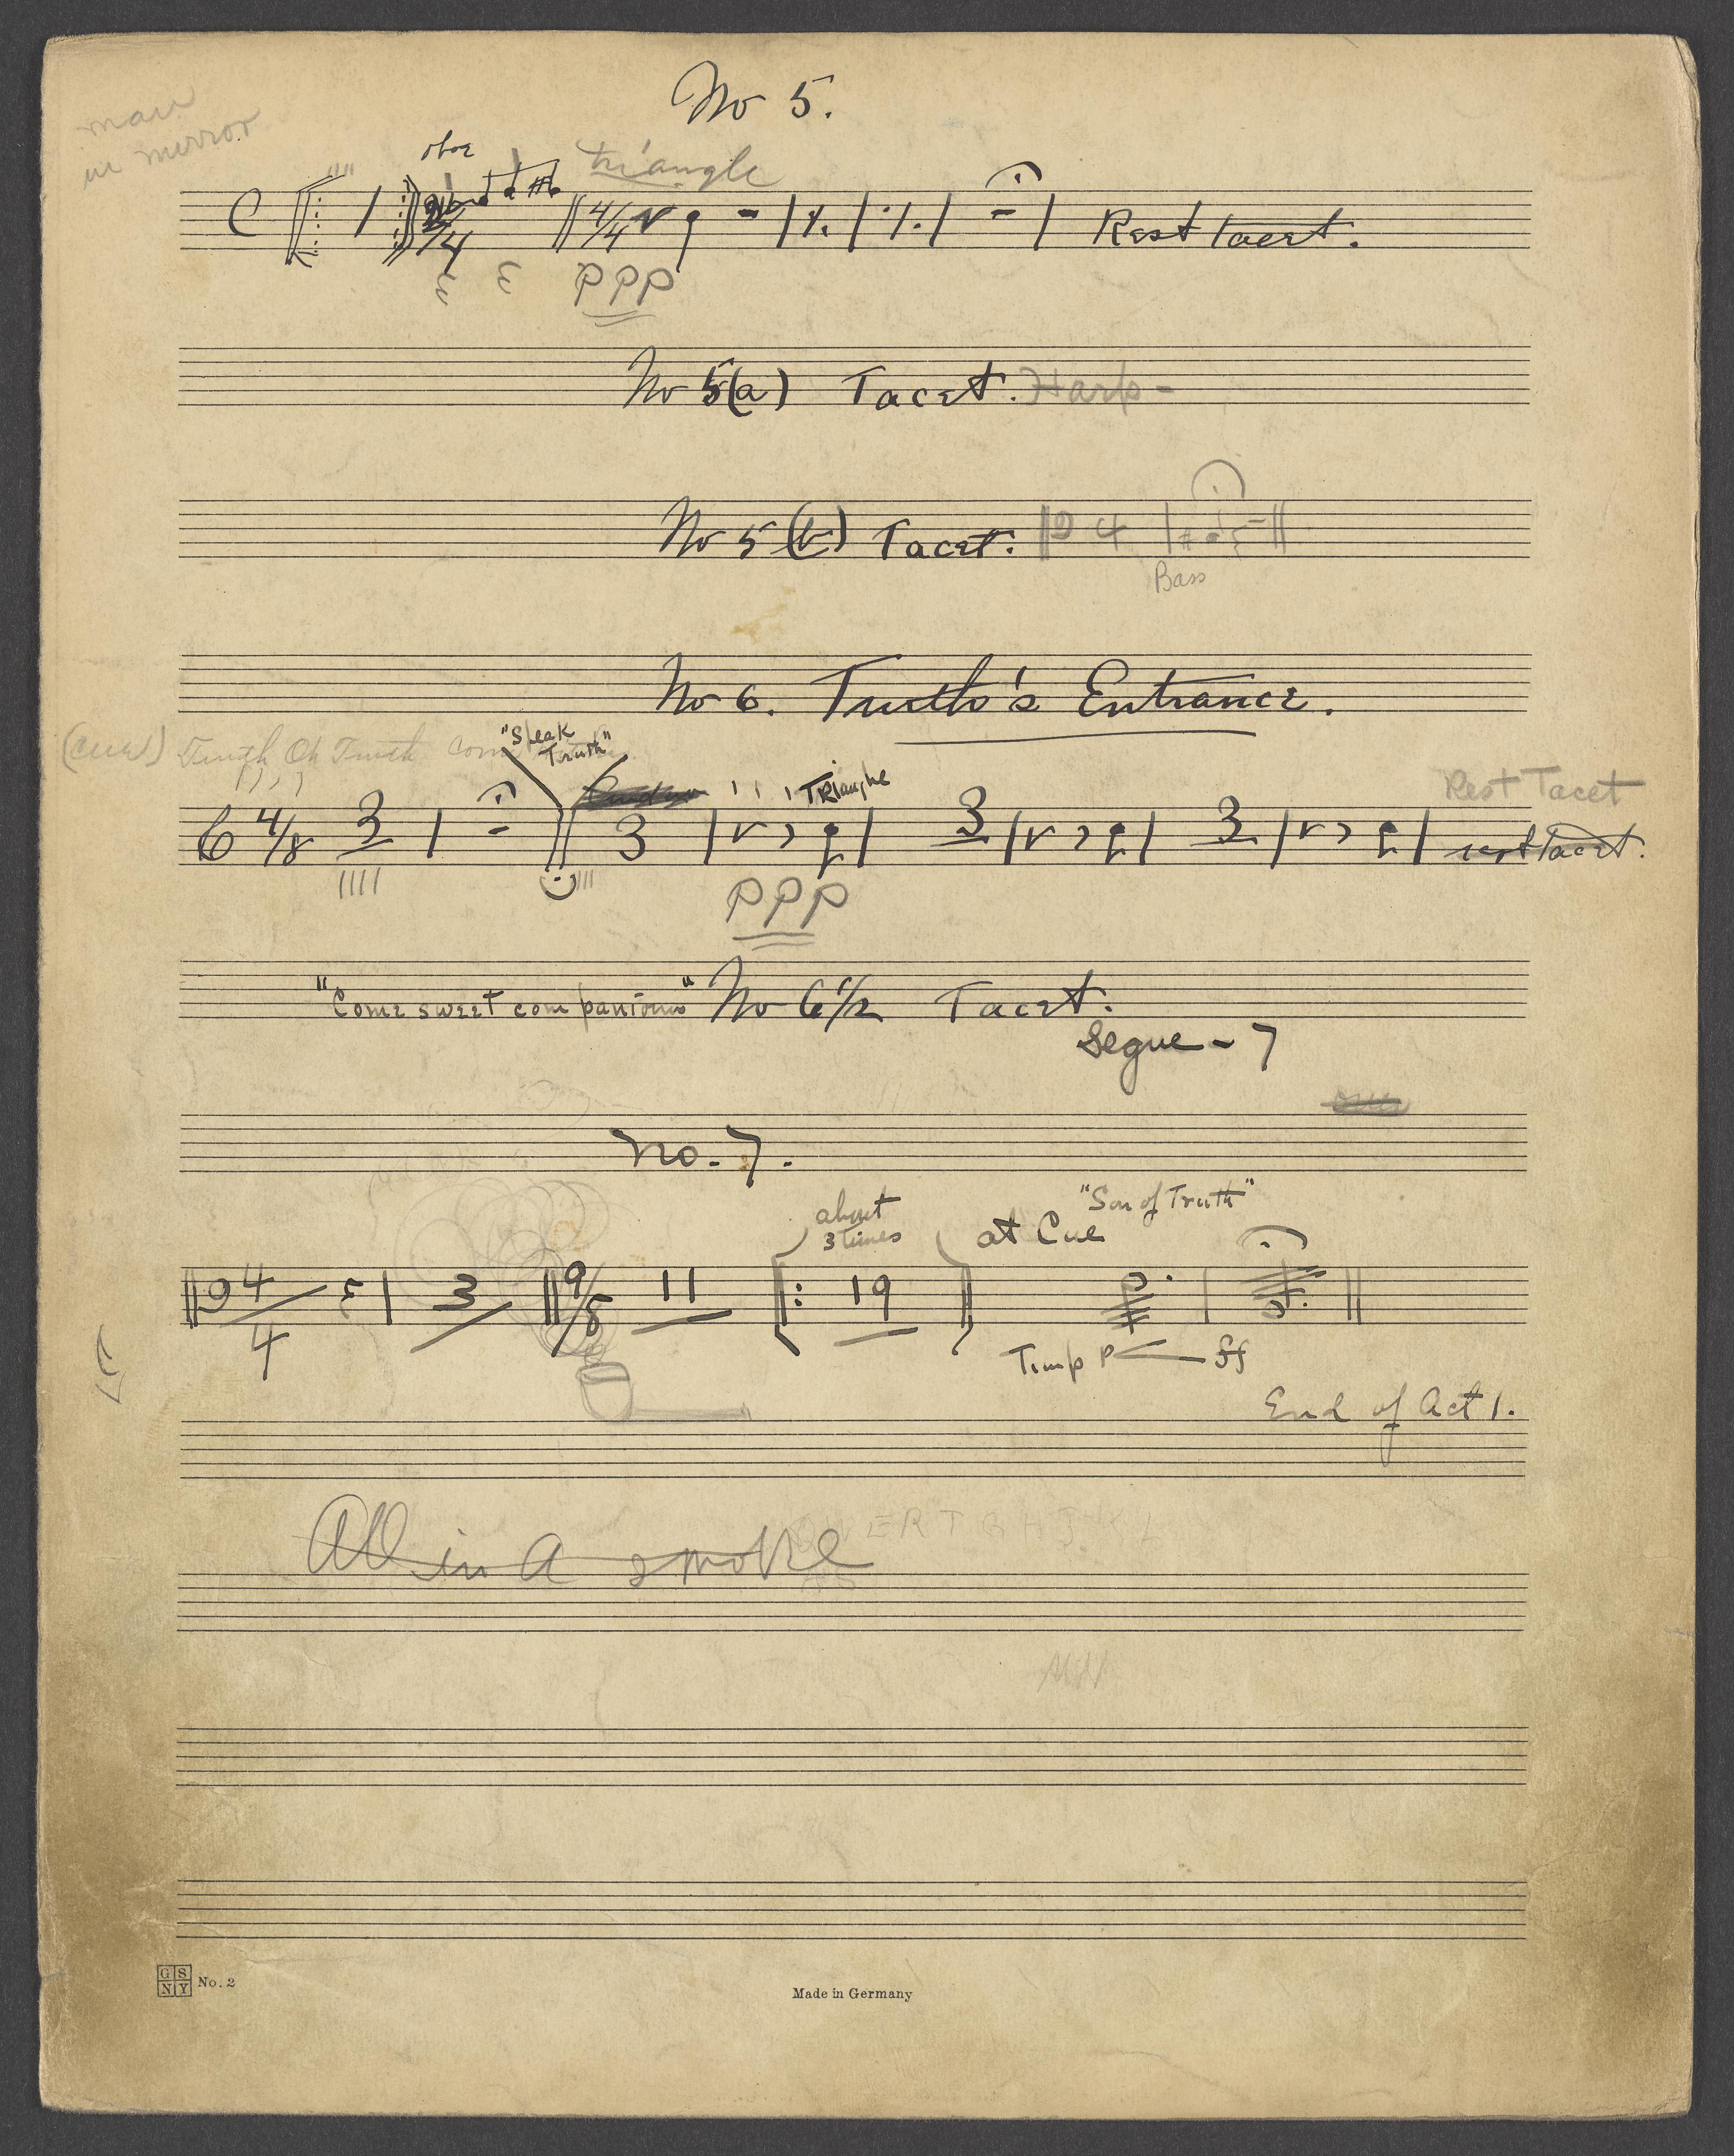 No 5.
man
in mirror
oboe
triangle
C 1 4/4 Rest tacet.
ppp
No 5(a) Tacet. Harp -
No 5(b) Tacet. 4
Bass
No 6. Truth's Entrance.
(cue) Truth Oh Truth Come "Speak
Truth"
Triangle
Rest Tacet
6 4/8 3 3 3 3 rest tacet.
ppp
"Come sweet companions" No 6 1/2 Tacet.
Segue - 7
No. 7.
about
3 times
"Son of Truth"
at Cue
4/4 3 9/8 11 19
Timp P ff
End of Act 1.
QWERTGHJKL
All in A smoke
GS
NY
No. 2
Made in Germany